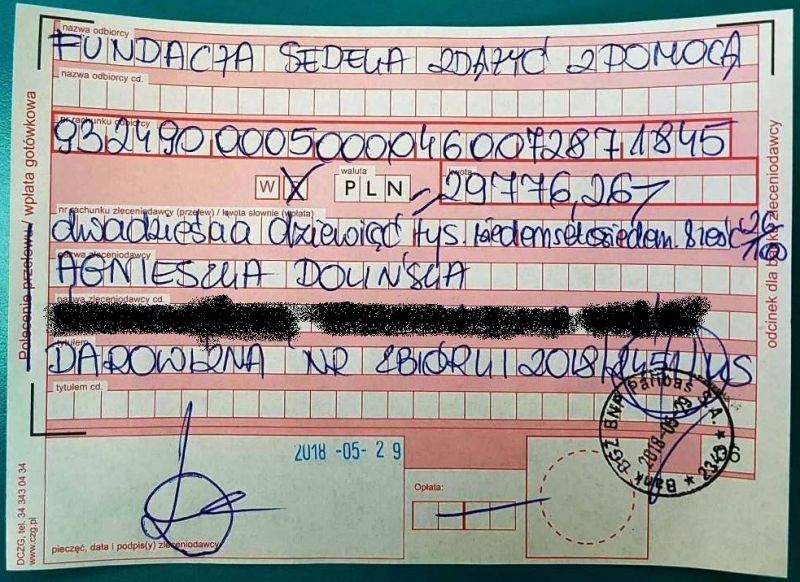 nazwa odbiorcy
FUNDACJA SEDEKA ZDĄŻYĆ Z POMOCĄ
nazwa odbiorcy cd.
nr rachunku odbiorcy
93249000050000460072871845
W X
waluta
PLN
kwota
=29776,26
nr rachunku zleceniodawcy (przelew) / kwota słownie (wpłata)
dwadzieścia dziewięć tys. siedemset siedem. sześć 26/100
AGNIESZKA DOLIŃSKA
nazwa zleceniodawcy cd.
tytułem
DAROWIZNA NR ZBIÓRKI 2018/1451/
tytułem cd.
2018 -05- 2 9
Opłata:
pieczęć, data i podpis(y) zleceniodawcy
Polecenie przelewu / wpłata gotówkowa
odcinek dla banku zleceniodawcy
DCZG, tel. 34 343 04 34
www.czg.pl
Bank BGŻ BNP Paribas S.A.
2018-05-29